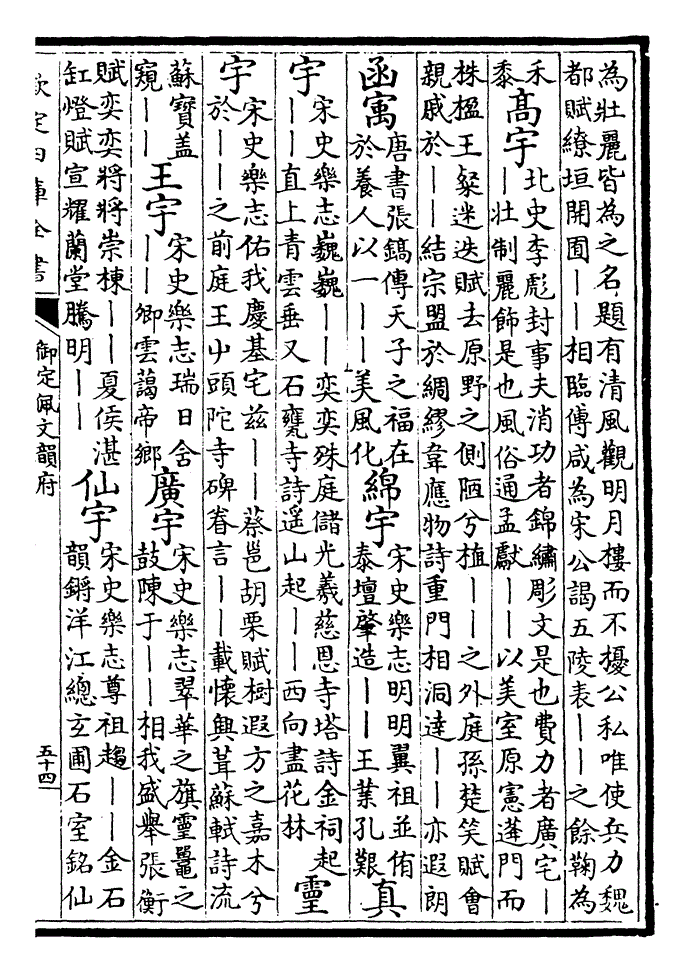 為壯麗皆為之名題有清風觀明月樓而不擾公私唯使兵力魏
都賦繚垣開囿——相臨傅咸為宋公謁五陵表——之餘鞠為
禾
黍
高宇
北史李彪封事夫消功者錦繡彫文是也費力者廣宅—
—壯制麗飾是也風俗通孟獻——以美室原憲蓬門而
株楹王粲迷迭賦去原野之側陋兮植——之外庭孫楚笑賦會
親戚於——結宗盟於綢繆韋應物詩重門相洞達——亦遐朗
函寓
唐書張鎬傳天子之福在
於養人以一——美風化
綿宇
宋史樂志明明翼祖並侑
泰壇肇造——王業孔艱
真
宇
宋史樂志巍巍——奕奕殊庭儲光羲慈恩寺塔詩金祠起
——直上青雲垂又石甕寺詩遥山起——西向盡花林
靈
宇
宋史樂志佑我慶基宅兹——蔡邕胡栗賦樹遐方之嘉木兮
於——之前庭王屮頭陀寺碑眷言——載懷興葺蘇軾詩流
蘇寶盖
窺——
王宇
宋史樂志瑞日舍
——卿雲藹帝鄉
廣宇
宋史樂志翠華之旗靈鼉之
鼓陳于——相我盛舉張衡
賦奕奕將將崇棟——夏侯湛
缸燈賦宣耀蘭堂騰明——
仙宇
宋史樂志尊祖趨——金石
韻鏘洋江總玄圃石室銘仙
欽定四庫全書
御定佩文韻府
五十四